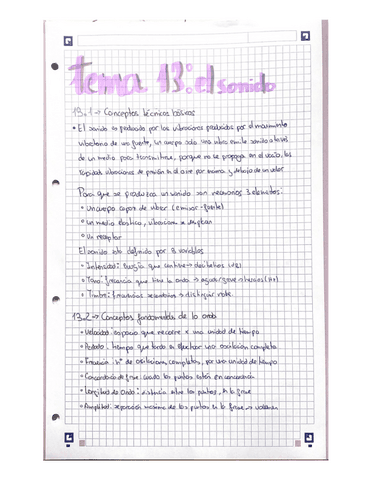 tema 13: el sonido
13.1 → Conceptos técnicos básicos
• El sonido es producido por las vibraciones producidas por el movimiento
vibratorio de una fuente, un cuerpo solo vibra emite sonido a través
de un medio para transmitirse, porque no se propaga en el vacío, las
rápidas vibraciones de presión en el aire por encima y debajo de un valor
Para que se produzca un sonido son necesarios 3 elementos:
• Un cuerpo capaz de vibrar (emisor - fuente)
• Un medio elástico, vibraciones se
• Un receptor
El sonido está definido por 3 variables
• Intensidad: Energía que contiene → decibelios (dB)
• Tono: frecuencia que tiene la onda → agudo/grave → hercios (Hz)
• Timbre: frecuencias → distinguir
13.2 → Conceptos fundamentales de la onda
• Velocidad: espacio que recorre x una unidad de tiempo
• Periodo: tiempo que tarda en efectuar una oscilación completa
• Frecuencia: nº de oscilaciones completas, por una unidad de tiempo
• Concordancia de fase: cuando los puntos están en concordancia
• Longitud de Onda: distancia entre los puntos, en la fase
• Amplitud: separación máxima de los puntos en la fase → volumen